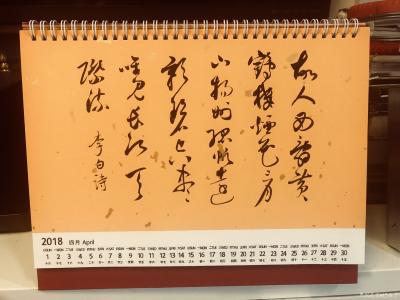 故人西辭黃
鶴樓煙花三月
下揚州孤帆遠
影碧空盡
唯見長江天
際流
李白詩
2018 四月 April
1 2 3 4 5 6 7 8 9 10 11 12 13 14 15 16 17 18 19 20 21 22 23 24 25 26 27 28 29 30